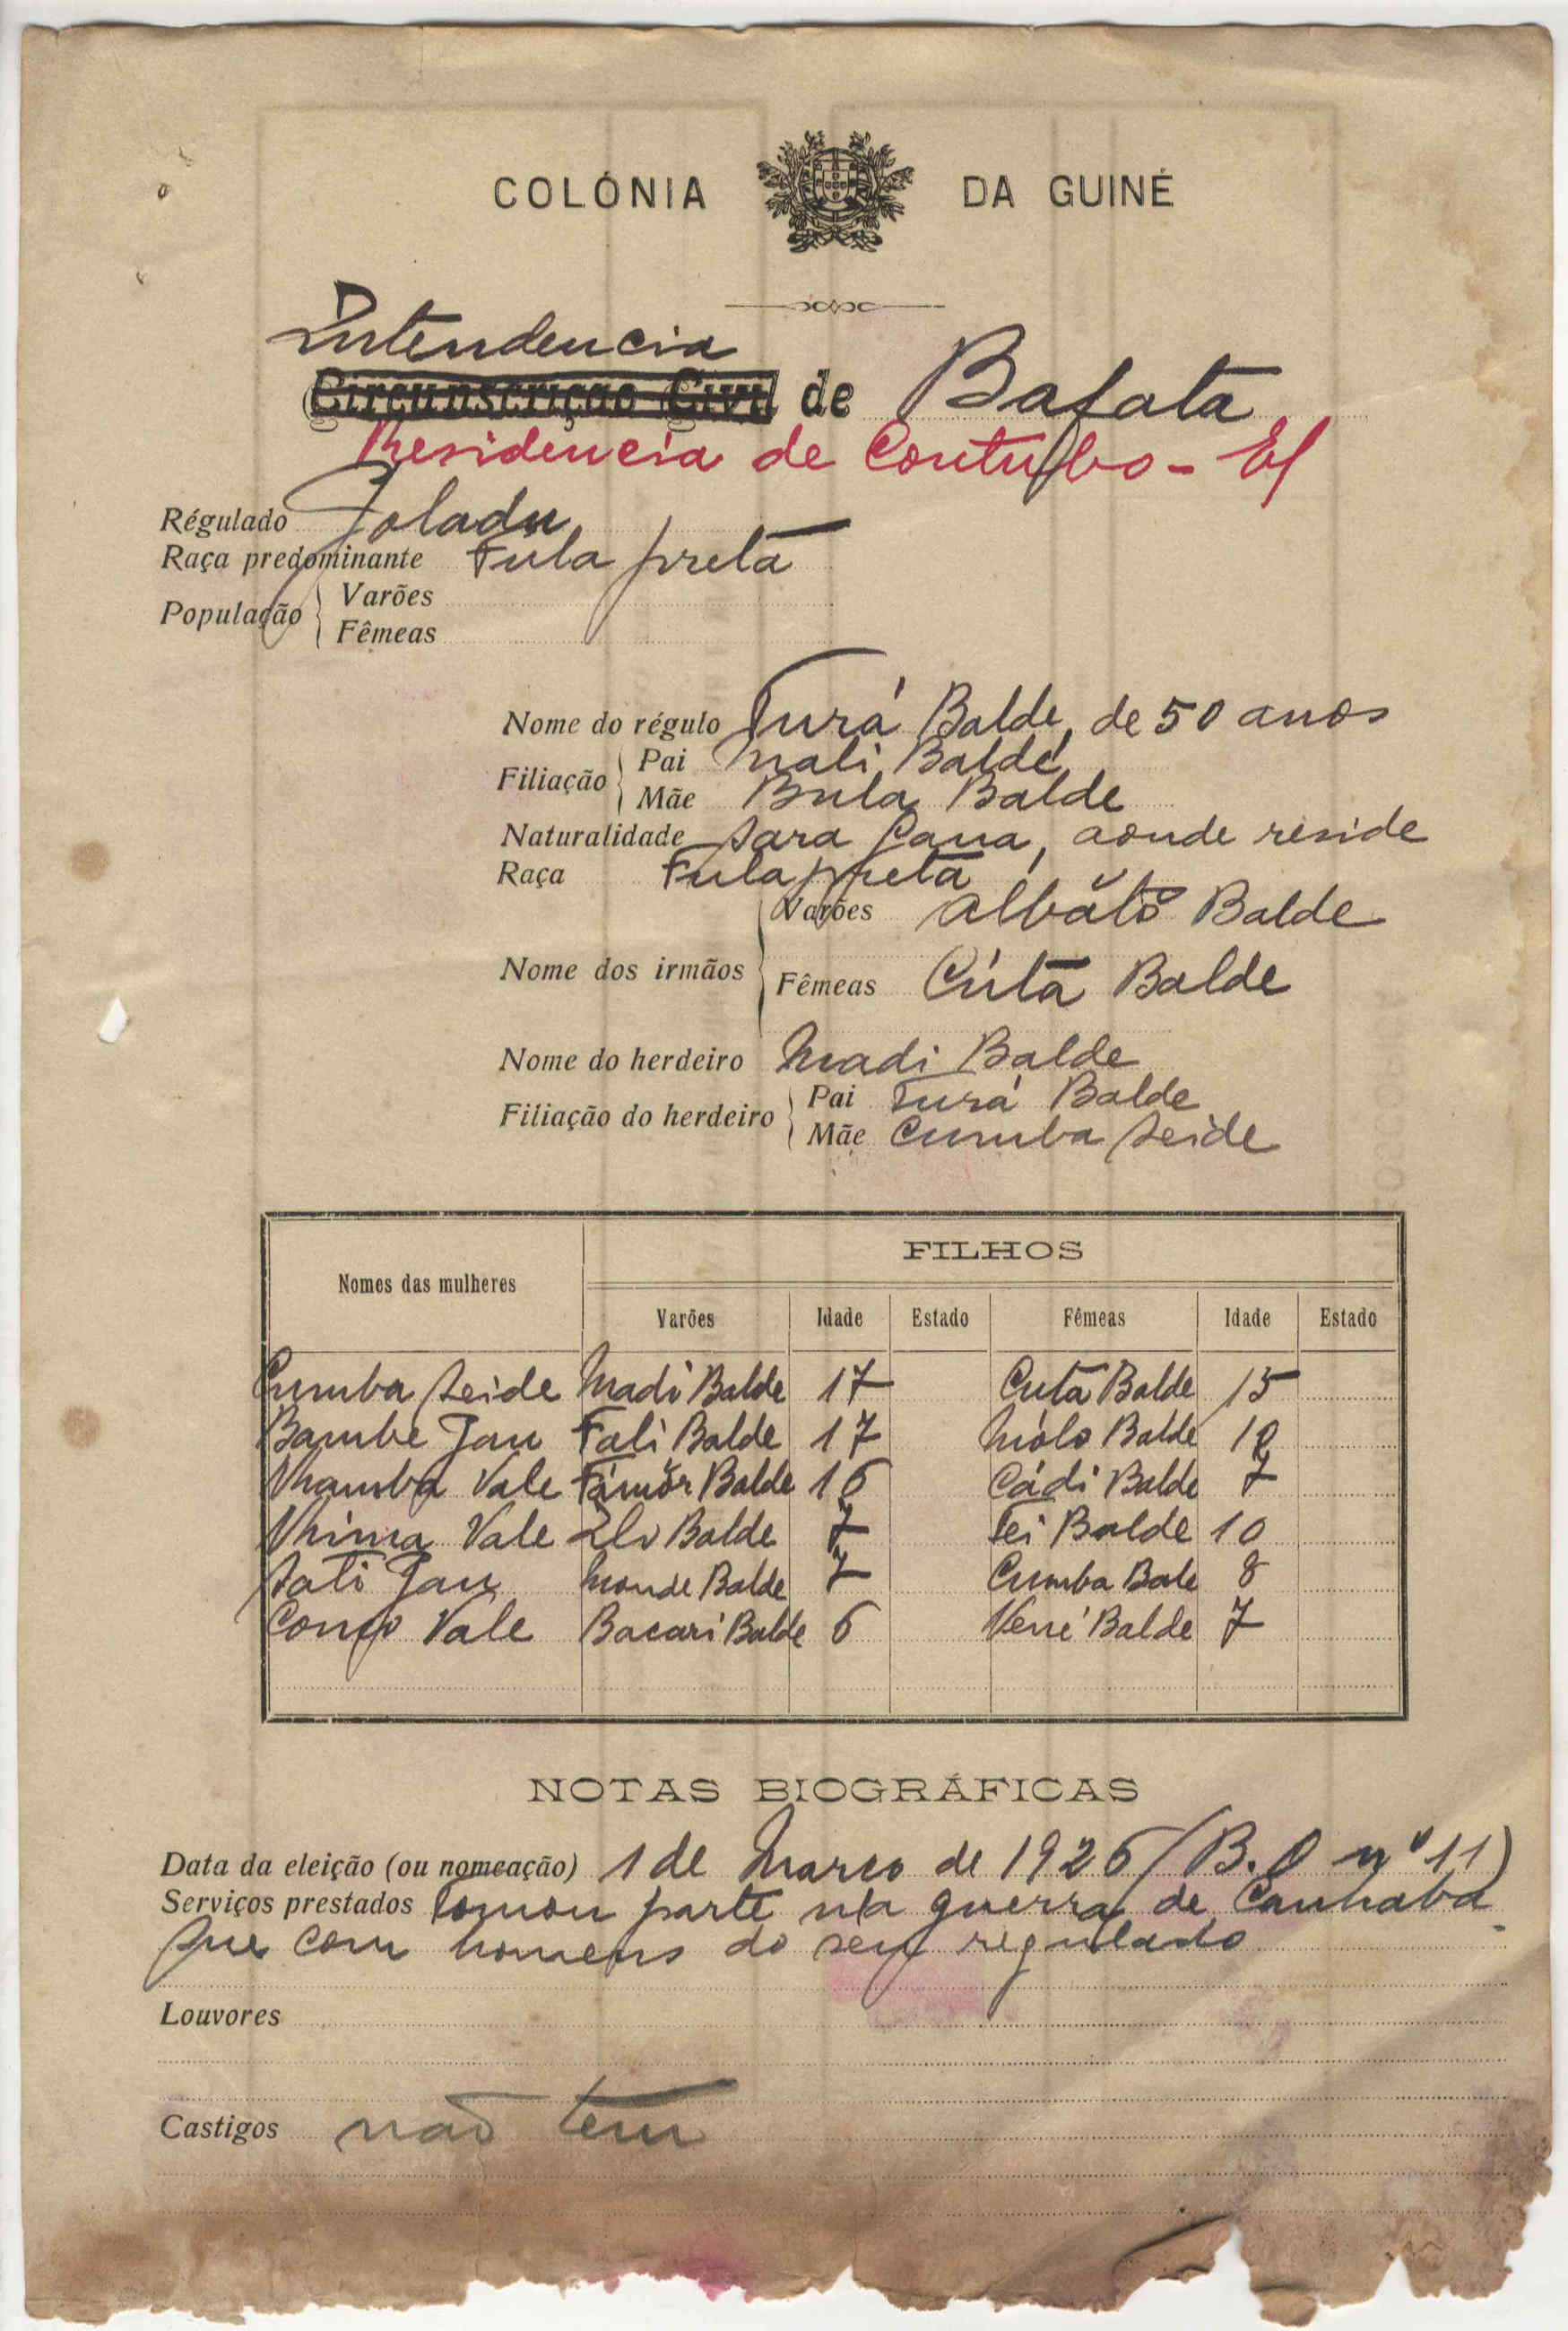 COLÓNIA DA GUINÉ
Intendencia
Circunscrição Civil de Bafata
Residencia de Contubo-El
Régulado Joladu
Raça predominante Fula preta
População Varões
Fêmeas
Nome do régulo Turá Balde, de 50 anos
Filiação Pai Mali Baldé
Mãe Bula Balde
Naturalidade Sara Gana, aonde reside
Raça Fula preta
Nome dos irmãos Varões Albátó Balde
Fêmeas Cúta Balde
Nome do herdeiro Madi Balde
Filiação do herdeiro Pai Turá Balde
Mãe Cumba Seide
Nomes das mulheres FILHOS
Varões Idade Estado Fêmeas Idade Estado
Cumba Seide Madi Balde 17 Cuta Balde 15
Bambe Jau Fali Balde 17 Móló Balde
Vale Balde 16 Cádi Balde 7
Vale Balde 7 Tei Balde 10
Sati Jau Monde Balde 7 Cumba Bale 8
Vale Bacari Balde 6 Balde 7
NOTAS BIOGRÁFICAS
Data da eleição (ou nomeação) 1 de Março de 1926 (B.O nº 11)
Serviços prestados Tomou parte na guerra de Canhaba
que com homens do seu regulado
Louvores
Castigos não tem